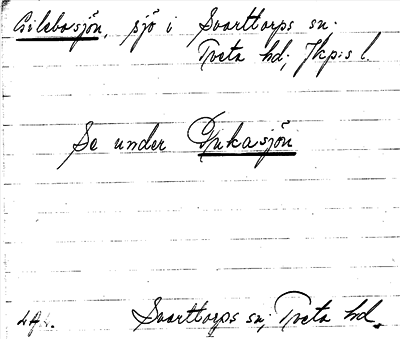 Gilebosjön, sjö i Svarttorps sn.
Tveta hd; Jkp:s l.
Se under Djukasjön
Svarttorps sn; Tveta hd.